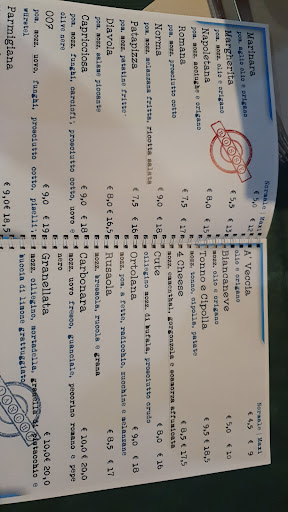 Normale | Maxi
Marinara € 5,0
pom. aglio olio e origano
Margherita € 5,5
pom. mozz. olio e origano
Napoletana € 8,0 € 15
pom. mozz. acciughe e origano
Romana € 7,5 € 17
pom. mozz. prosciutto cotto
Norma € 9,0 € 18
pom. mozz. melanzana fritta, ricotta salata
Patapizza € 7,5 € 16
pom. mozz. patatine fritte
Diavola € 8,0 € 16,5
pom. mozz. salame piccante
Capricciosa € 9,0 € 18
pom. mozz. funghi, carciofi, prosciutto cotto, uovo e
olive nere
007 € 9,0 € 19
pom. mozz. uovo, funghi, prosciutto cotto, piselli,
wurstel
Parmigiana € 9,0 € 18,5
Normale | Maxi
A' Veccia € 4,5 € 9
olio e origano
Biancaneve € 5,0 € 10
mozz. olio e origano
Tonno e Cipolla € 9,5 € 18,5
mozz. tonno, cipolla, patate
4 Cheese € 8,5 € 17,5
mozz. emmenthal, gorgonzola e scamorza affumicata
Cute € 8,0 € 16
ciliegino mozz. di bufala, prosciutto crudo
Ortolana € 9,0 € 18
mozz. pom. a fette, radicchio, zucchine e melanzane
Rusaola € 8,5 € 17
mozz. bresaola, rucola e grana
Carbonara € 10,0 € 20,0
mozz. uovo fresco, guanciale, pecorino romano e pepe
nero
Granellata € 10,0 € 20,0
mozz. ciliegino, mortadella, granella di pistacchio e
buccia di limone grattuggiato